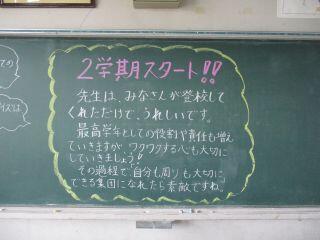 2学期スタート!!
先生は、みなさんが登校して
くれただけで、うれしいです。
最高学年としての役割や責任も増え
ていきますが、ワクワクする心も大切に
していきましょう!
その過程で「自分も周りも大切に
できる集団」になれたら素敵ですね。
ての
イズは